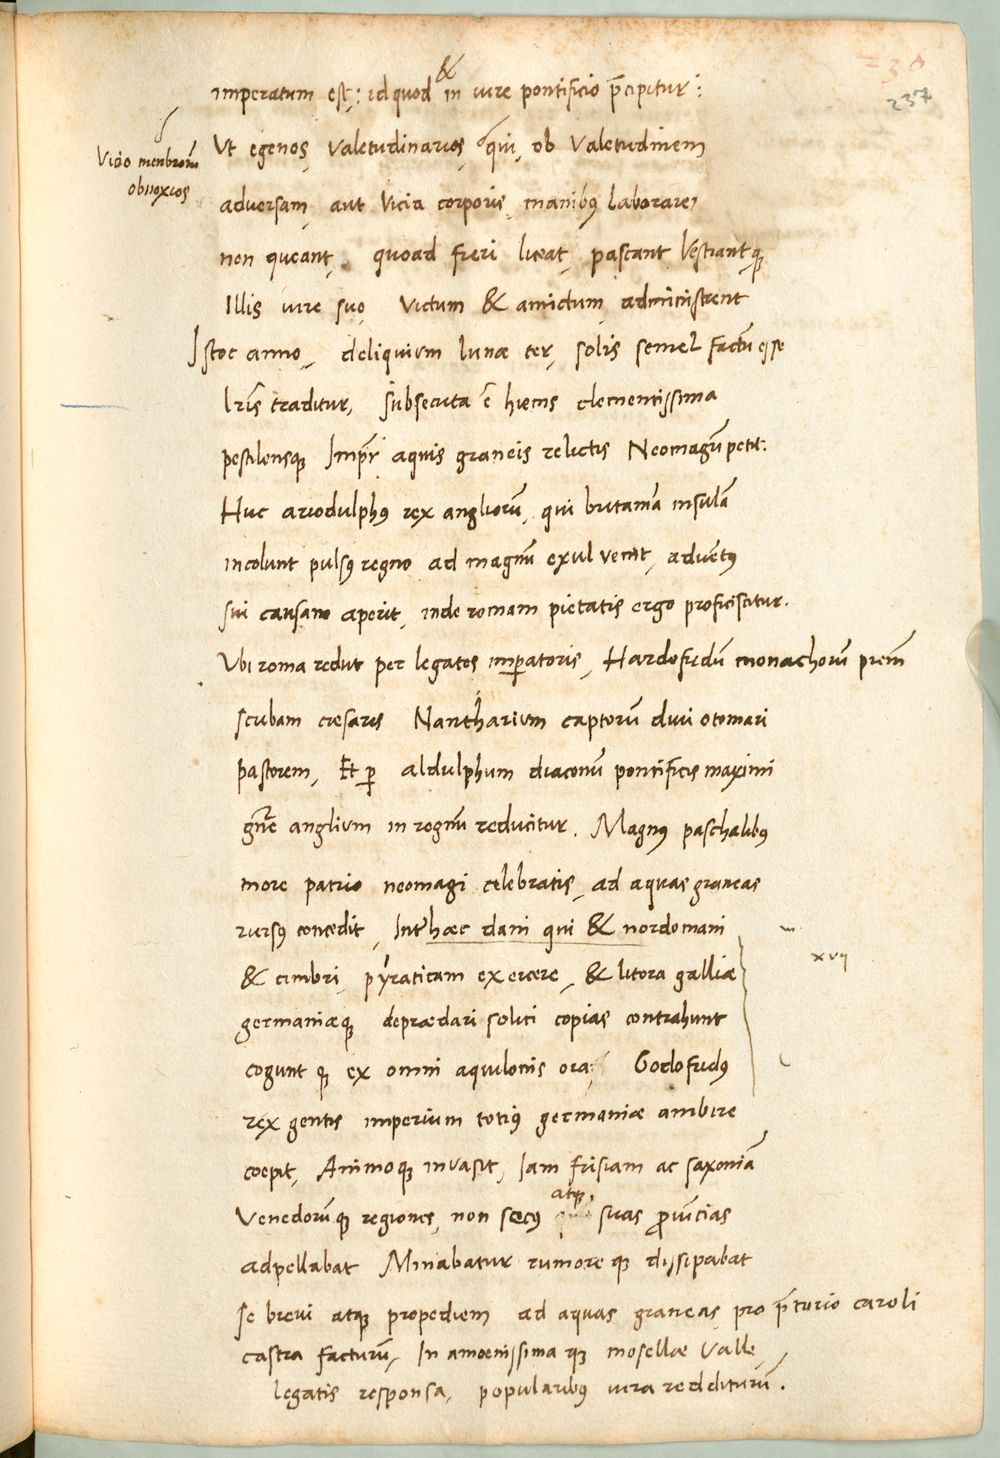 230
237
&
imperatum est: id quod in iure pontificio p̄cipitur:
Vicio membrorū
obnoxios
Vt egenos, valetudinarios, qui, ob valetudinem
aduersam, aut vicia corporis, manibꝯ laborare,
non queant, quoad fieri liceat, pascant vestiantqꝫ
Illis iure suo, victum & amictum, administrent
Istoc anno, deliquium lunæ ter, solis semel factū eē se
traditur, subsecuta ē hiems clementissima
pestilensqꝫ Impr̄ aquis graneis relictis Neomagū petit:
Huc ariodulphꝯ rex angliorū, qui britaniā insulā
incolunt pulsꝯ regno ad magnū exul venit, aduētꝯ
sui causam aperit, inde romam pietatis ergo proficiscitur.
Vbi roma rediit per legatos imꝑatoris, Hardofridū monachorū prem̄
scribam cæsaris Nantharium captorū diui otomari
pastorem, Et ꝑ aldulphum diaconū pontificis maximi
gn̄e anglium in regnū reducitur. Magnꝯ paschalibꝯ
more patrio neomagi celebratis, ad aquas graneas
rursꝯ concedit, Int̄ hæc dani qui & nordomani
xvij
& cimbri, pyraticam exercere, & litora galliæ
germaniæqꝫ deprædari soliti copias contrahunt
cogunt qꝫ ex omni aquilonis ora: Godofridꝯ
rex gentis imperium totiꝯ germaniæ ambire
coepit, Animoqꝫ inuasit, Iam frisiam ac saxoniā
atqꝫ
Venedorū qꝫ regiones, non secꝯ suas ꝓuīcias
adpellabat Minabatur rumore qꝫ dissipabat
se breui atqꝫ propediem ad aquas graneas, pro p̄torio caroli
castra facturū, In amoenissima qꝫ mosellæ valle,
legatis responsa, popularibꝯ iura redditurū.